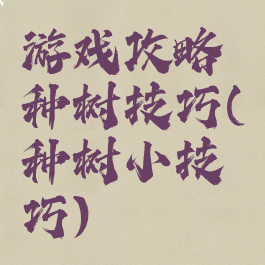 游戏攻略
种树技巧(
种树小技
巧)